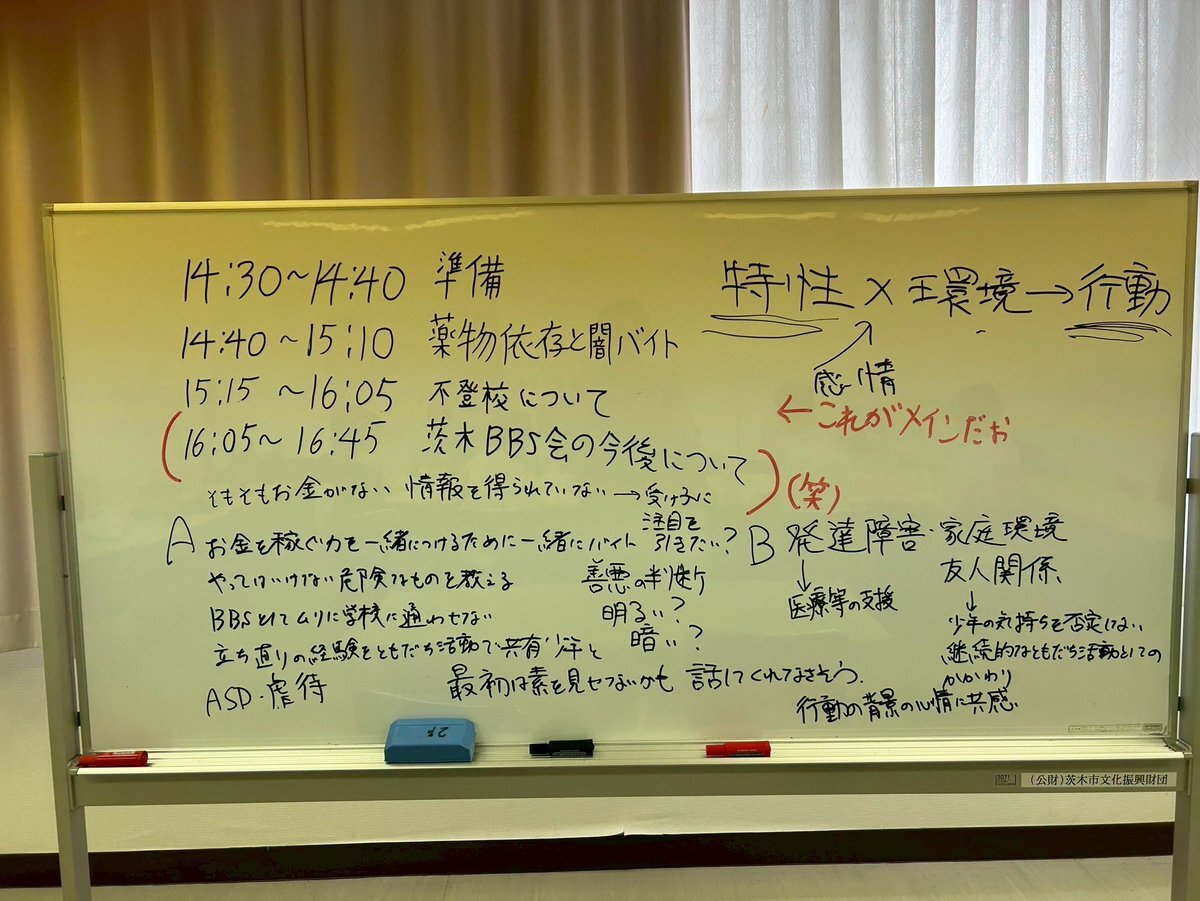 14:30～14:40 準備
14:40～15:10 薬物依存と闇バイト
15:15～16:05 不登校について
(16:05～16:45 茨木BBS会の今後について)
特性×環境→行動
感情
←これがメインだお
(笑)
そもそもお金がない 情報を得られていない→受け子に
注目を
引きたい?
A お金を稼ぐ力を一緒につけるために一緒にバイト
やってはいけない危険なものを教える
善悪の判断
BBSとしてムリに学校に通わせない
明るい?
立ち直りの経験をともだち活動で共有 少年と
暗い?
ASD・虐待
最初は素を見せないかも 話してくれなさそう.
B 発達障害・家庭環境
友人関係、
↓
医療等の支援
↓
少年の気持ちを否定しない
継続的なともだち活動としての
かかわり
行動の背景の心情に共感.
(公財)茨木市文化振興財団